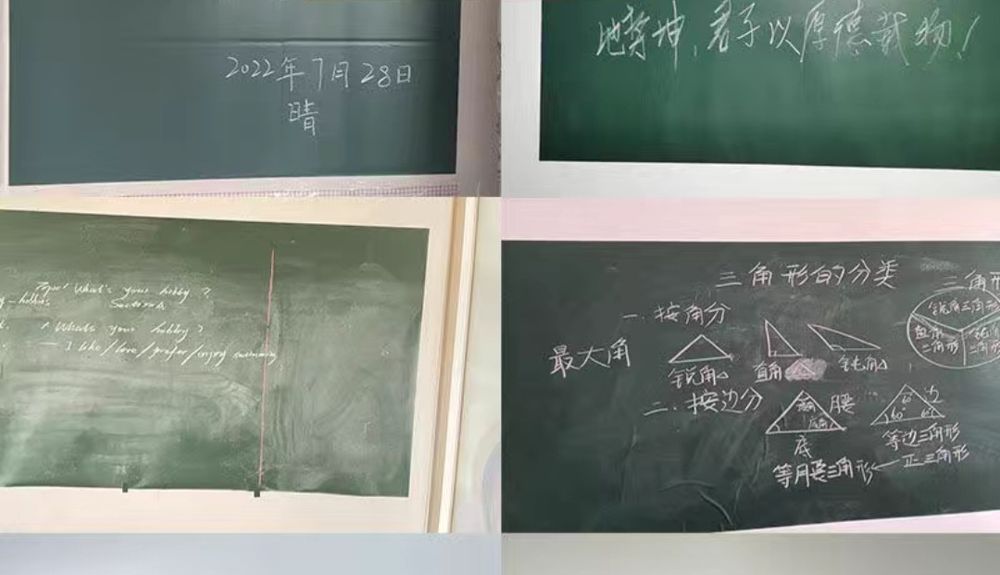 2022年7月28日
晴
地势坤,君子以厚德载物!
What's your hobby?
What's your hobby?
— I like/love/prefer/enjoy swimming
三角形的分类
一.按角分
最大角
锐角△
直角
钝角△
二.按边分
腰
底
等腰三角形←正三角形
60°
60°
边
等边三角形
三角形
锐角三角形
直角
三角形
三角形